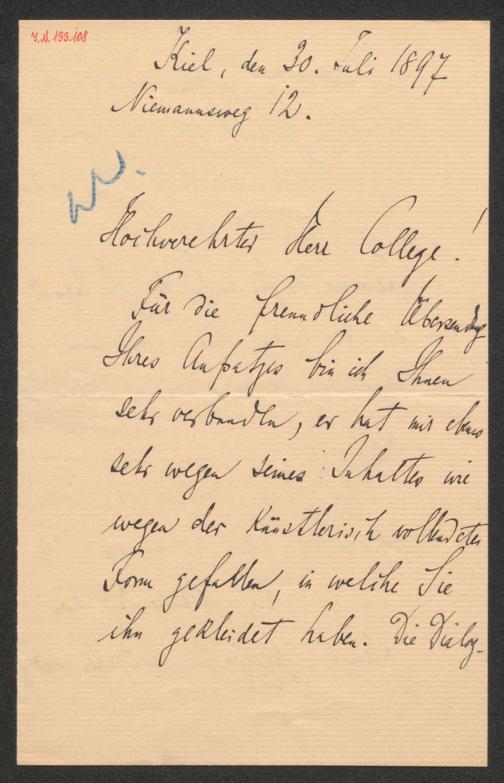 I.N. 133.108
Kiel, den 20. Juli 1897
Niemannsweg 12.
Hochverehrter Herr College!
Für die freundliche Übersendung
Ihres Aufsatzes bin ich Ihnen
sehr verbunden, er hat mir ebenso
sehr wegen seines Inhaltes wie
wegen der künstlerisch vollendeten
Form gefallen, in welche Sie
ihn gekleidet haben. Die Dialog-